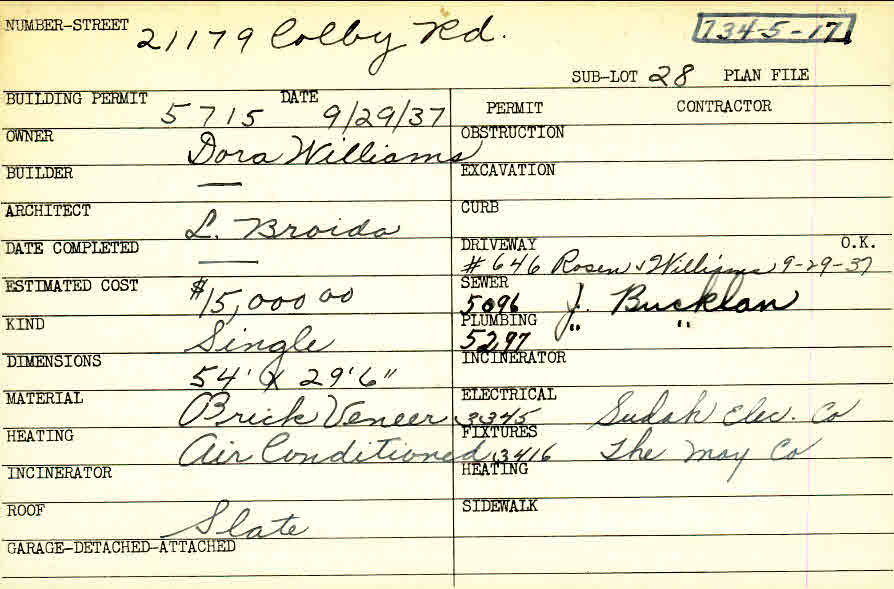 NUMBER-STREET 21179 Colby Rd. 734-5-17
SUB-LOT 28 PLAN FILE
BUILDING PERMIT 5715 DATE 9/29/37
PERMIT CONTRACTOR
OWNER Dora Williams
OBSTRUCTION
BUILDER —
EXCAVATION
ARCHITECT L. Broida
CURB
DATE COMPLETED —
DRIVEWAY O.K.
# 646 Rosen & Williams 9-29-37
ESTIMATED COST $15,000 00
SEWER
5096 J. Bucklan
KIND Single
PLUMBING " "
5297
DIMENSIONS 54' X 29'6"
INCINERATOR
MATERIAL Brick Veneer
ELECTRICAL
3345 Elec. Co
HEATING Air Conditioned
FIXTURES
3416 The May Co
INCINERATOR
HEATING
ROOF Slate
SIDEWALK
GARAGE-DETACHED-ATTACHED